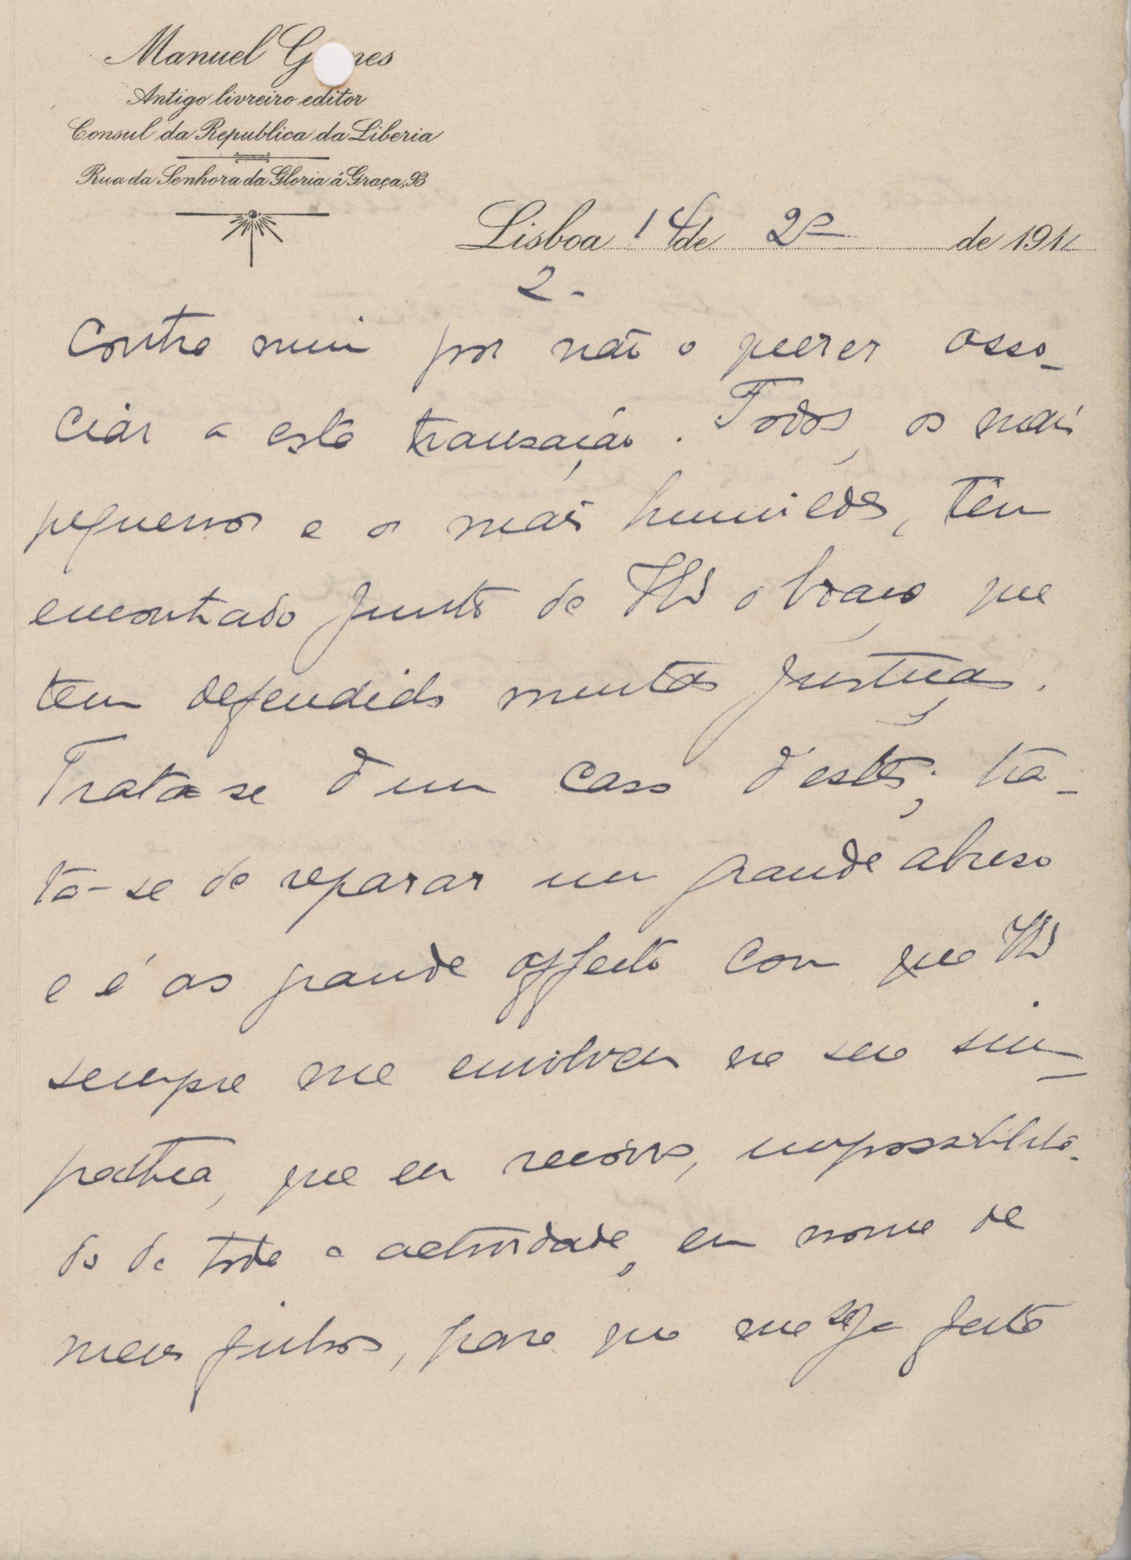 Manuel Gomes
Antigo livreiro editor
Consul da Republica da Liberia
Rua da Senhora da Gloria á Graça, 93
Lisboa 14 de 2º de 191
2-
contra mim por não o querer asso-
ciar a esta transação. Todos, os mais
pequenos e os mais humildes, têm
encontrado junto de o braço que
tem defendido muitas justiças.
Trata se d'um caso d'estes; tra-
ta-se de reparar um grande abuso
e é ao grande affecto com que
sempre me envolveu na sua sim-
pathia, que eu recorro, impossibilita-
do de toda a actividade, em nome de
meus filhos, para que me seja feita